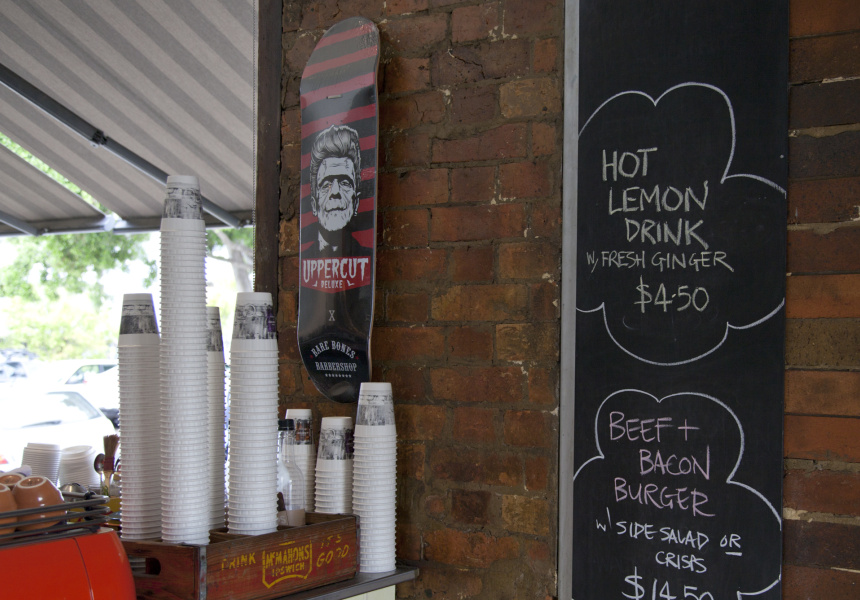 UPPERCUT
DELUXE
X
BARE BONES
BARBERSHOP
DRINK
McMAHONS
IPSWICH
IT'S
GOOD
HOT
LEMON
DRINK
W/ FRESH GINGER
$4.50
BEEF +
BACON
BURGER
W/ SIDE SALAD OR
CRISPS
$14.50